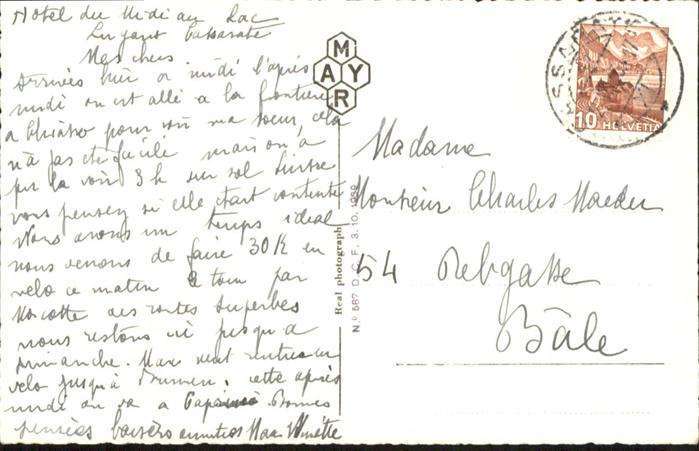 Hotel du Midi au Lac
Lugano Cassarate
Mes chers
Arrivées hier a midi l'après
midi on est allé a la frontière
a Chiasso pour voir ma soeur, cela
n'a pas été facile mais on a
pu la voir 3 h sur sol Suisse
vous pensez si elle était contente
Nous avons un temps ideal
nous venons de faire 30 K en
velo ce matin le tour par
Morcotte des routes superbes
nous restons ici jusqu'a
dimanche. Max veut rentrer en
velo jusqu'à Brunnen. cette après
midi on va a Bonnes
pensées baisers Max
MAYR
Real photograph
N.º 587 D. C. F. 3. 10. 1939
10 HELVETIA
CASSARATE
Madame
Monsieur Charles Maeder
54 Rebgasse
Bâle